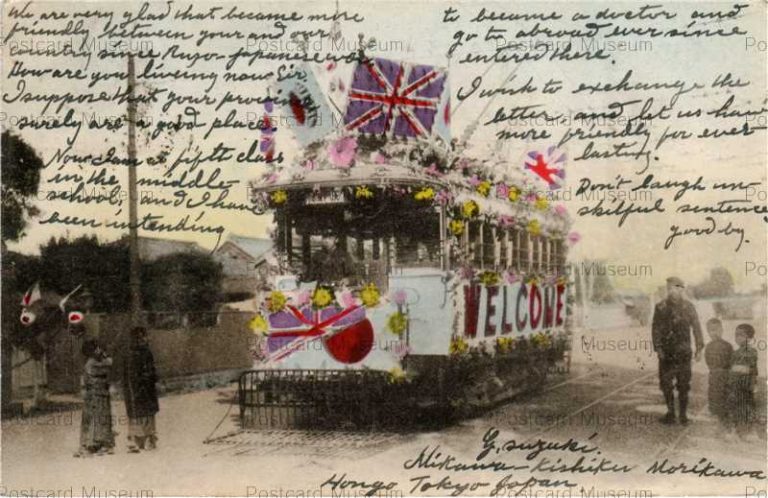 We are very glad that became more
friendly between your and our
country since Ruzo-Japanese war
How are you liveing now Sir.
I suppose that your province
surely are a good place.
Now I am a fifth class
in the middle-
school, and I have
been intending
to became a doctor and
go to abroad ever since
entered there.
I wish to exchange the
letter and let us have
more friendly for ever
lasting.
Don't laugh un-
skilful sentence
good by.
WELCOME
G. Suzuki.
Mikawa-Kishiku Morikawa
Hongo Tokyo Japan
Postcard Museum